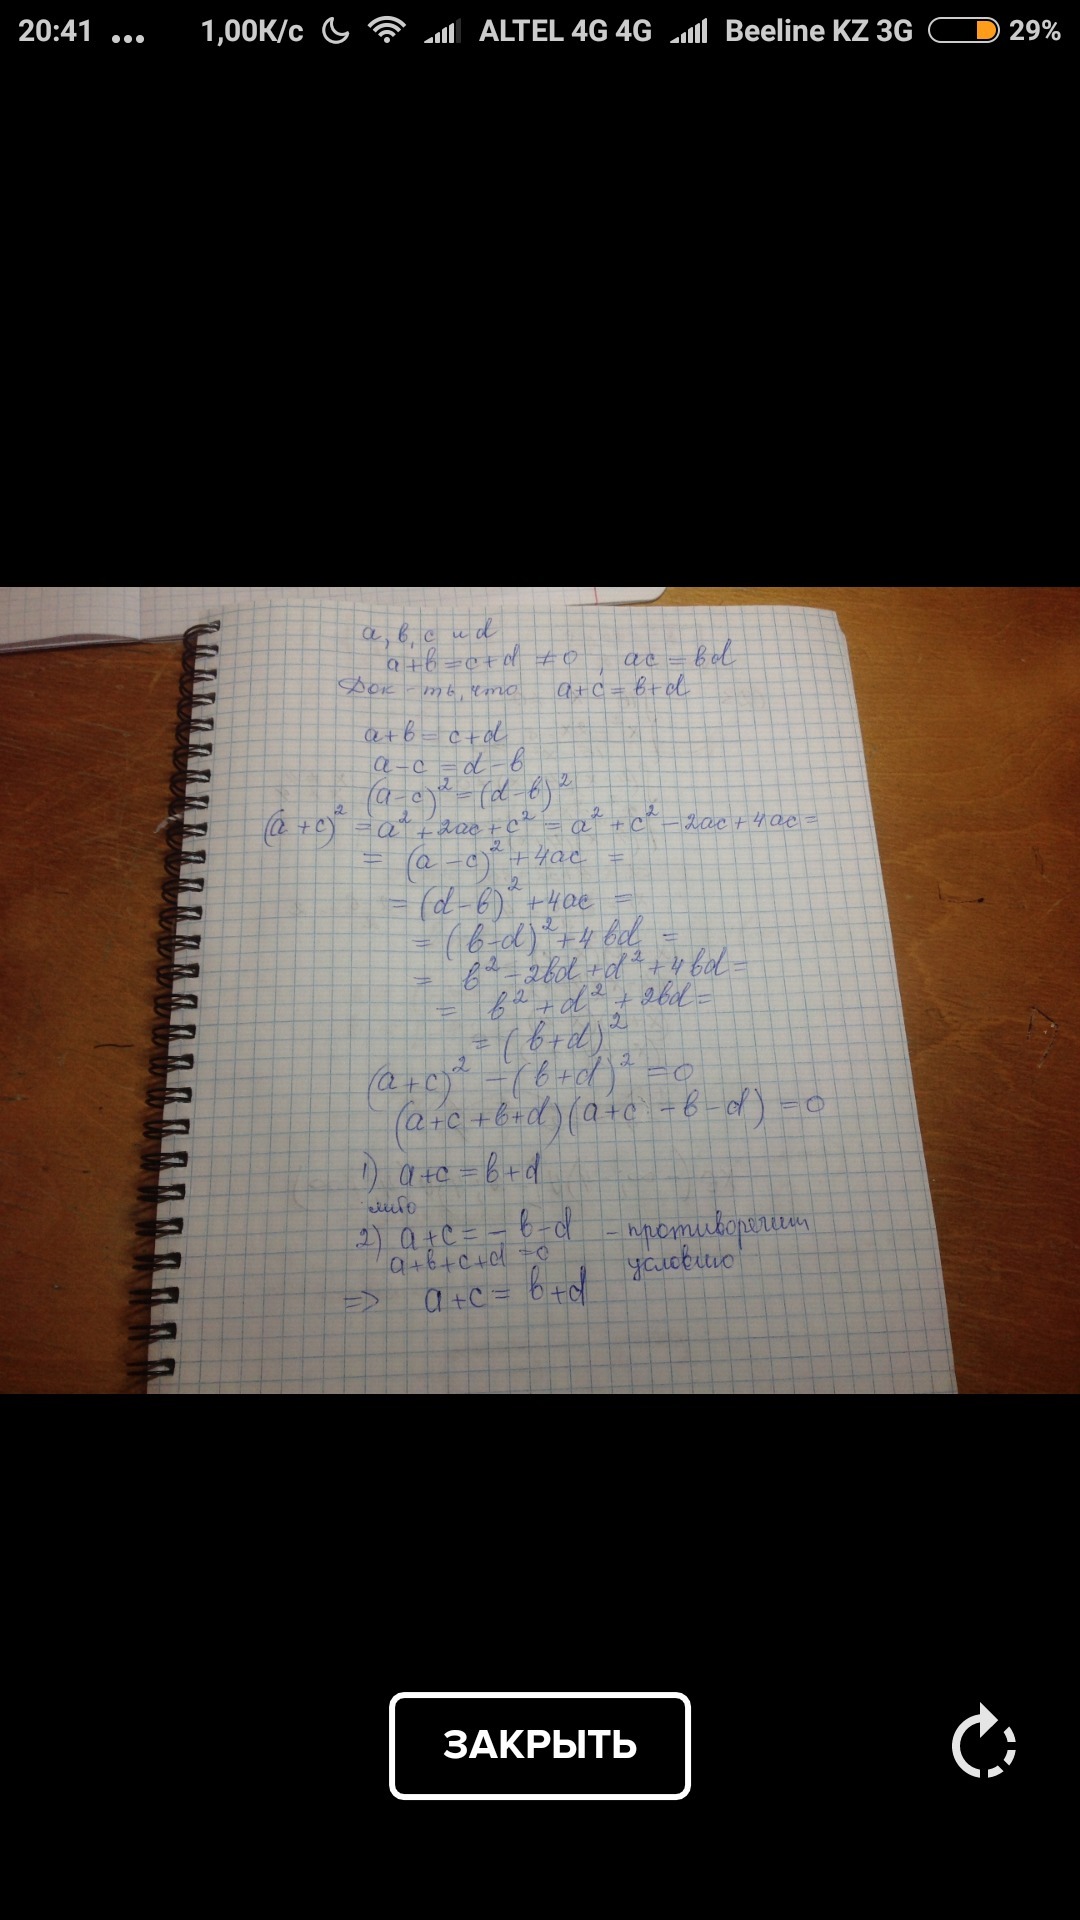 20:41 ... 1,00K/c ALTEL 4G 4G Beeline KZ 3G 29%
a, в, c и d
a+в=c+d ≠0, ac=вd
Док-ть, что a+c=в+d
a+в=c+d
a-c=d-в
(a-c)²=(d-в)²
(a+c)²=a²+2ac+c²=a²+c²-2ac+4ac=
=(a-c)²+4ac=
=(d-в)²+4ac=
=(в-d)²+4вd=
=в²-2вd+d²+4вd=
=в²+d²+2вd=
=(в+d)²
(a+c)²-(в+d)²=0
(a+c+в+d)(a+c-в-d)=0
1) a+c=в+d
либо
2) a+c=-в-d - противоречит
a+в+c+d=0 условию
=> a+c=в+d
ЗАКРЫТЬ